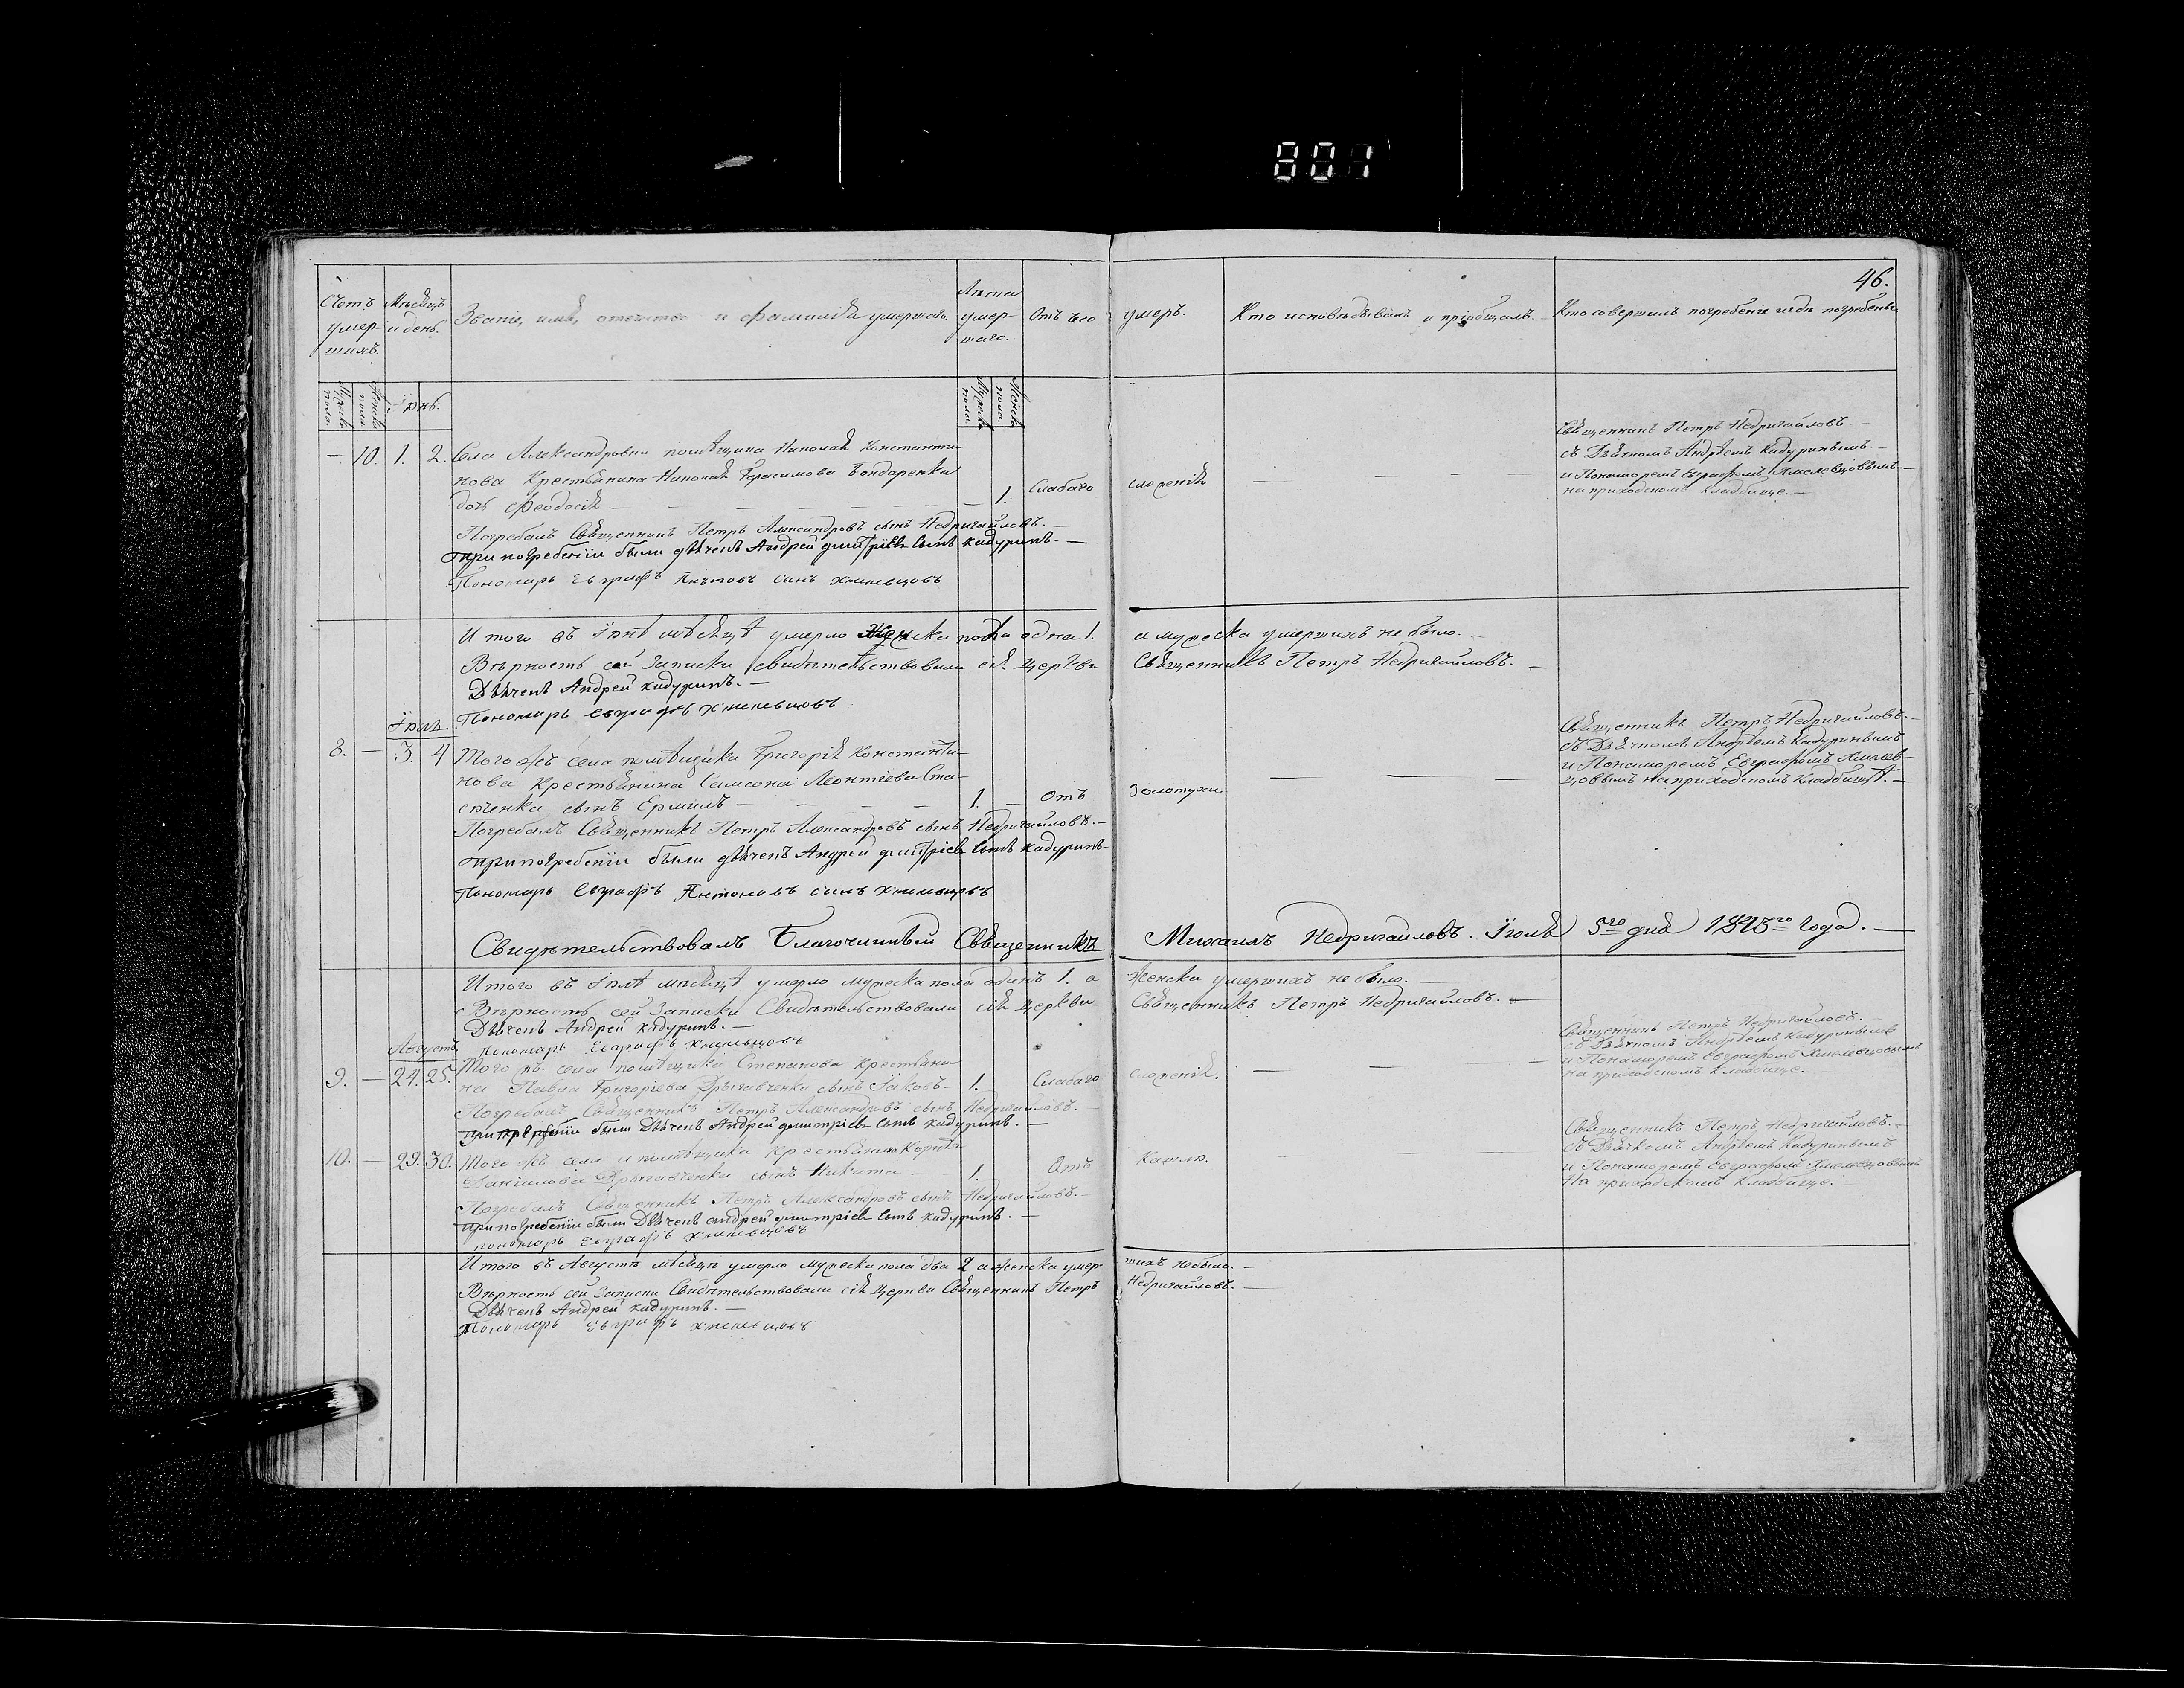 801
46.
Счетъ умершихъ.
Мужеска пола.
Женска пола.
Мѣсяцъ и день.
Званіе, имя, отечество и фамилія умершаго.
Лѣта умершаго.
Мужеска пола.
Женска пола.
Отъ чего умеръ.
Кто исповѣдывалъ и пріобщалъ.
Кто совершилъ погребеніе и гдѣ погребены
Іюнь.
— 10. 1. 2. Села Александровки помѣщика Николая Константи-
нова Крестьянина Николая Герасимова Бондаренка
дочь Феодосія — 1. Слабаго сложенія
Священникъ Петръ Недригайловъ.—
съ Дьячкомъ Андреемъ Кадуринымъ.—
и Пономаремъ Евграфомъ Хмелевцовымъ.—
на приходскомъ кладбище.—
Погребалъ Священникъ Петръ Александровъ сынъ Недригайловъ.—
при погребеніи были дьячекъ Андрей дмитріевъ сынъ кадуринъ.—
Пономарь Евграфъ Антоновъ сынъ хмелевцовъ
Итого въ Іюнѣ мѣсяцѣ умерло Женска пола одна 1. а мужеска умершихъ не было.—
Вѣрность сей Записки свидѣтельствовали сея церкви Священникъ Петръ Недригайловъ.—
Дьячекъ Андрей кадуринъ.—
Пономарь евграфъ хмелевцовъ
Іюль.
8. — 3. 4 Того жъ села помѣщика Григорія Константи-
нова Крестьянина Самсона Леонтіева
сынъ Ермилъ — 1. — Отъ Золотухи
Священникъ Петръ Недригайловъ.—
съ Дьячкомъ Андреемъ Кадуринымъ
и Пономаремъ Евграфомъ Хмелев-
цовымъ на приходскомъ кладбищѣ.—
Погребалъ Священникъ Петръ Александровъ сынъ Недригайловъ.—
при погребеніи были дьячекъ Андрей дмитріевъ сынъ кадуринъ—
Пономарь Евграфъ Антоновъ сынъ хмелевцовъ
Свидѣтельствовалъ Благочинный Священникъ Михаилъ Недригайловъ. Іюля 5го дня 1843го года.—
Итого въ Іюлѣ мѣсяцѣ умерло мужеска пола одинъ 1. а Женска умершихъ не было.—
Вѣрность сей Записки Свидѣтельствовали сея церкви Священникъ Петръ Недригайловъ.—
Дьячекъ Андрей кадуринъ.—
пономарь Евграфъ хмелевцовъ
Августъ
9. — 24. 25. Того жъ села помѣщика Степанова крестьяни-
на Павла Григоріева сынъ Іаковъ— 1. Слабаго сложенія.
Священникъ Петръ Недригайловъ.—
съ Дьячкомъ Андреемъ Кадуринымъ
и Пономаремъ Евграфомъ Хмелевцовымъ
на приходскомъ кладбище.
Погребалъ Священникъ Петръ Александровъ сынъ Недригайловъ.—
при погребеніи были Дьячекъ Андрей дмитріевъ сынъ кадуринъ.—
10. — 29. 30. Того жъ села и помѣщика крестьянина Корнѣя
Даніилова сынъ Никита — 1. Отъ Кашлю.
Священникъ Петръ Недригайловъ.—
съ Дьячкомъ Андреемъ Кадуринымъ
и Пономаремъ Евграфомъ Хмелевцовымъ
На приходскомъ кладбище.—
Погребалъ Священникъ Петръ Александровъ сынъ Недригайловъ.—
при погребеніи были Дьячекъ андрей дмитріевъ сынъ кадуринъ.—
пономарь Евграфъ хмелевцовъ
Итого въ Августѣ мѣсяцѣ умерло мужеска пола два 2 а женска умер- шихъ не было.—
Вѣрность сей Записки Свидѣтельствовали сея Церкви Священникъ Петръ Недригайловъ.—
Дьячекъ Андрей кадуринъ.—
Пономарь Евграфъ хмелевцовъ